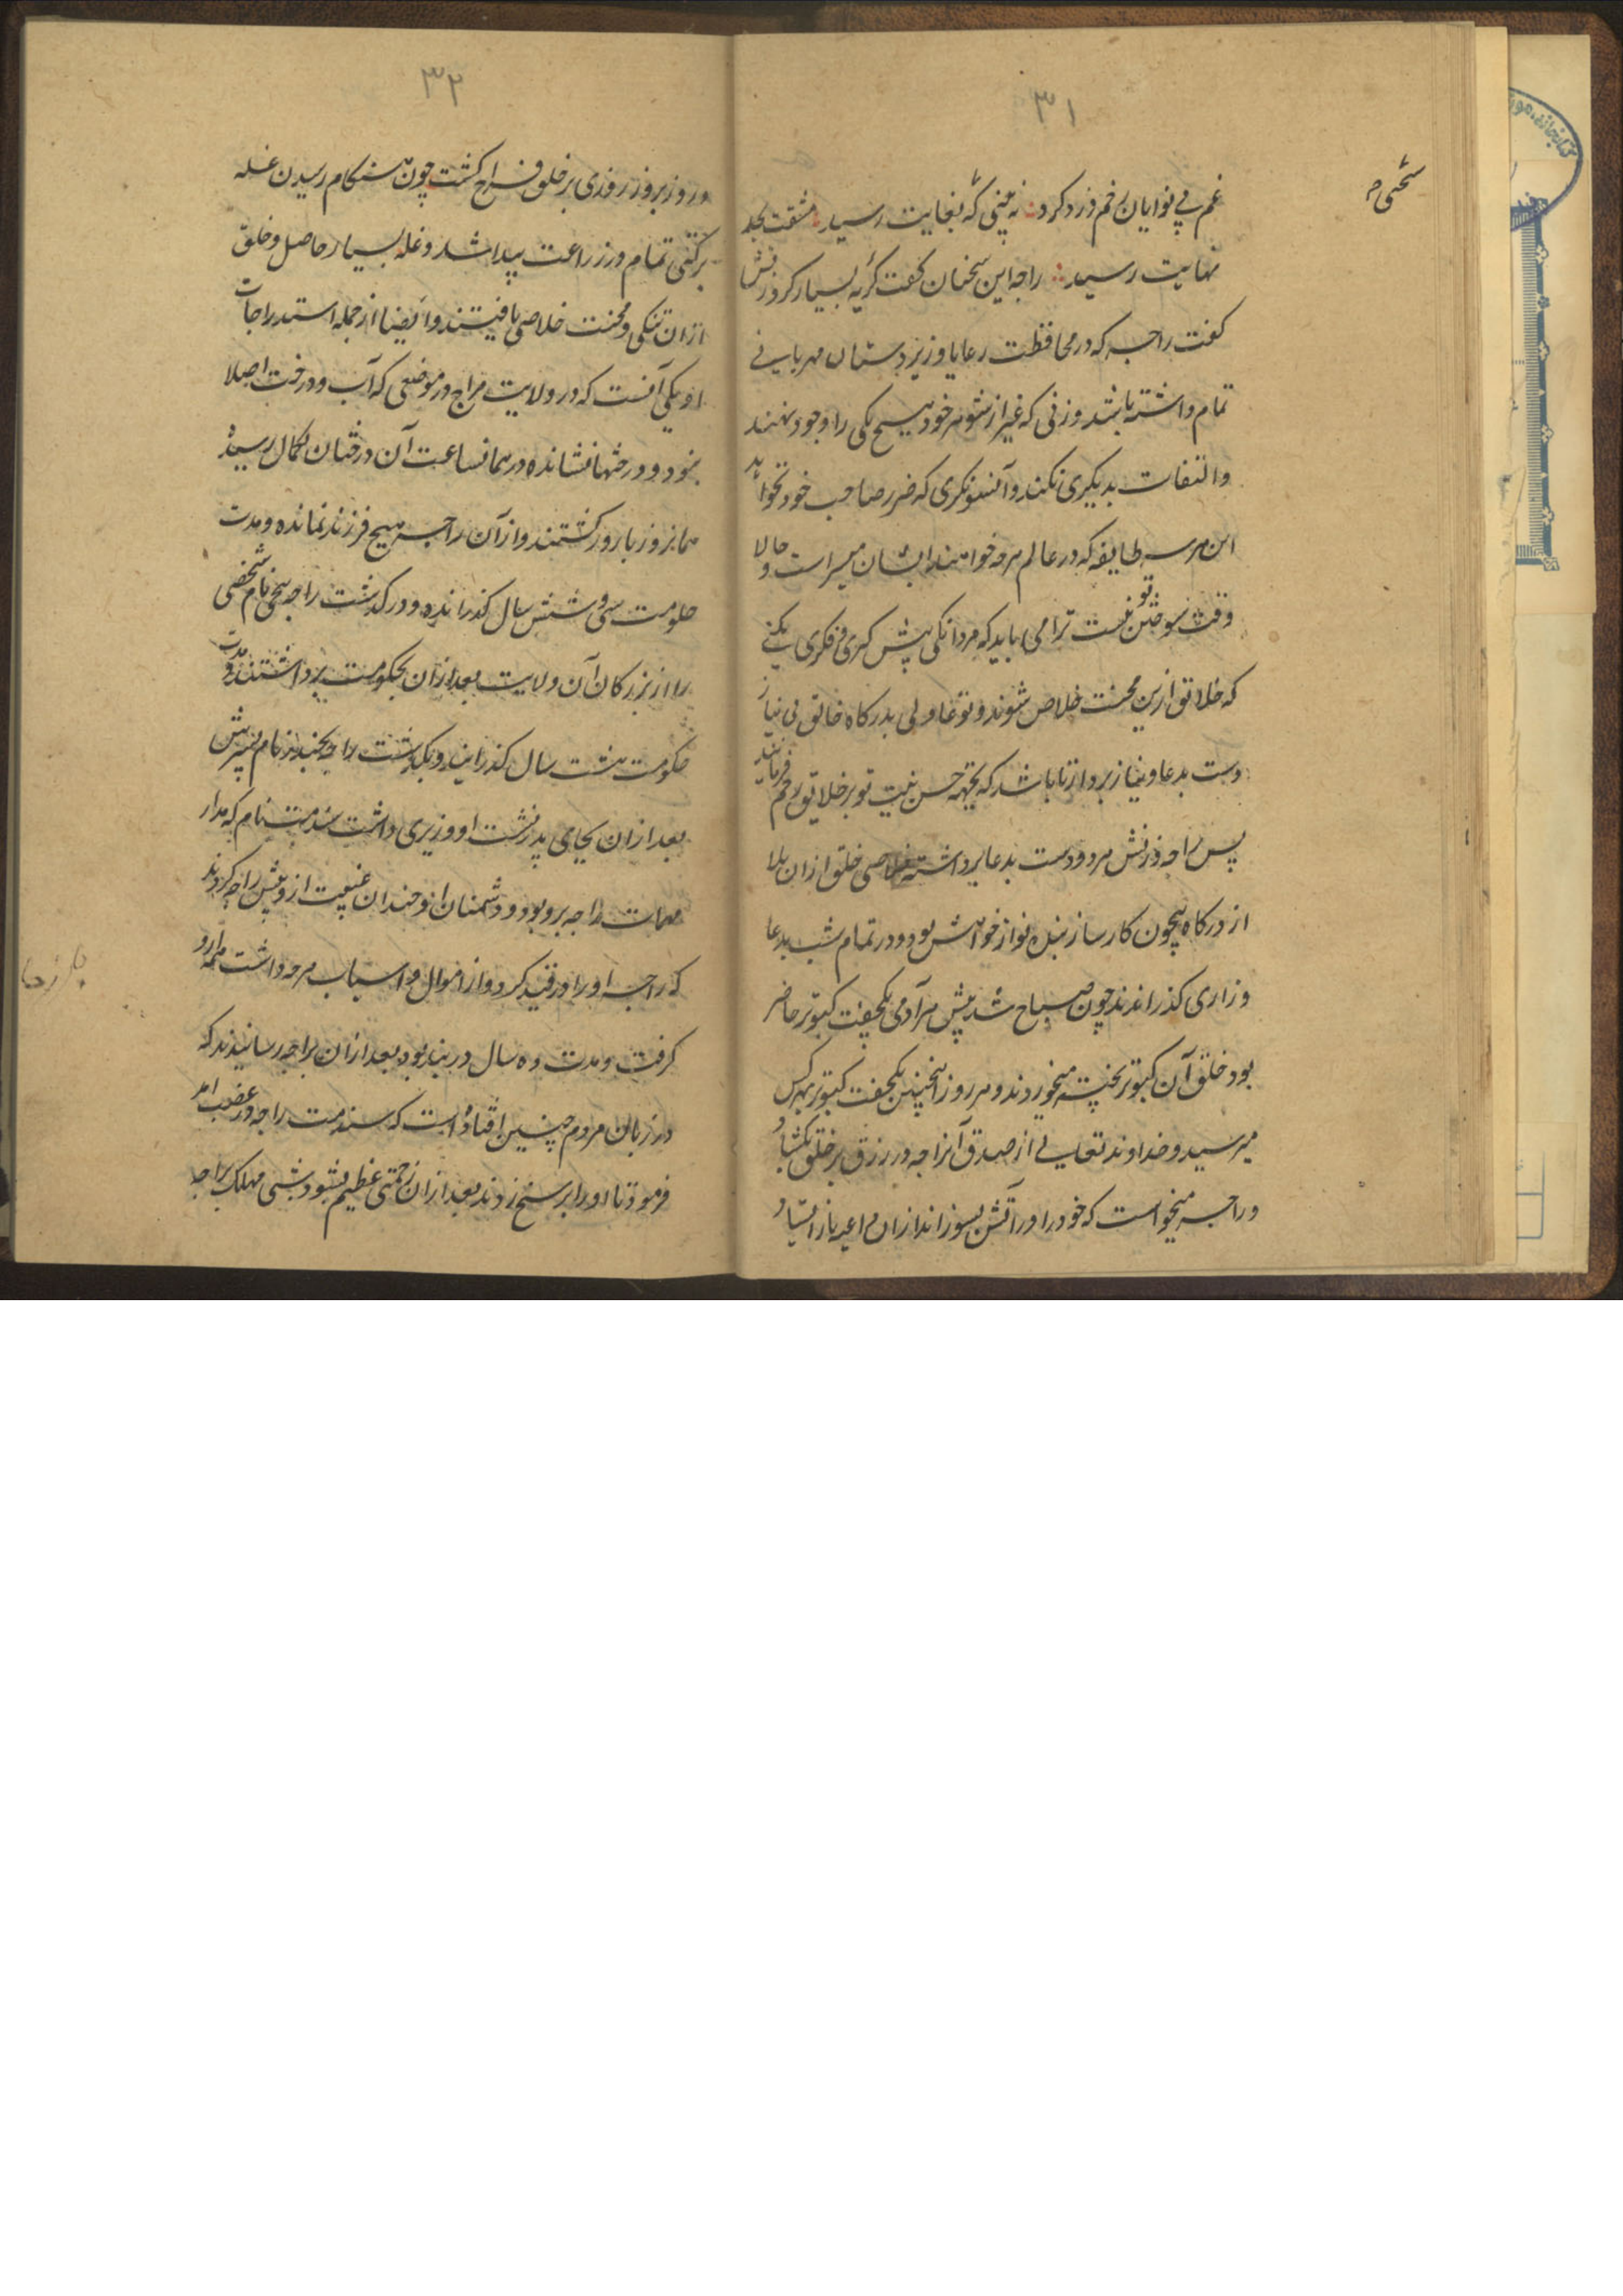 ۳۱
سختی
غم بی نوایان رخم زرد کرد نه بینی که بغایت رسید مشقت بحد
نهایت رسید راجه این سخنان گفت گریه بسیار کرد زنش
گفت راجه که در محافظت رعایا و زیردستان مهربانی
تمام داشته باشد و زنی که غیر از شوهر خود هیچ یکی را وجود ننهند
والتفات بدیگری نکند و آنسو نکری که ضرر صاحب خود نخواهد
این هر سه طایفه که در عالم هرچه خواهند ایشان میسر است و حالا
وقت سوختن تو نیست ترا می باید که مردانگی پیش گری و فکری بکنی
که خلائق ازین محنت خلاص شوند و تو غاولی بدرگاه خالق بی نیاز
دست بدعا و نیاز بردار تا باشد که بجهة حسن نیت تو بر خلایق رحم فرماید
پس راجه وزنش هر دو دست بدعا برداشته خلاصی خلق ازان بلا
از درگاه بیچون کارساز بنده نواز خواهش بود و در تمام شب بدعا
وزاری گذراندند چون صباح شد پیش هر آدمی یکجفت کبوتر حاضر
بود خلق آن کبوتر پخته میخوردند و هر روز اینچنین یکجفت کبوتر بهر کس
میرسید و خداوند تعالی از صدق آنراجه در رزق بر خلق بکشاد
وراجه میخواست که خود را در آتش بسوزاند ازان داعیه باز ایستاد
۳۲
و روز بروز روزی بر خلق فراخ گشت چون هنگام رسیدن غله
برکتی تمام در زراعت پیدا شد و غله بسیار حاصل و خلق
ازان تنگی و محنت خلاصی یافتند و ایضا از جمله استدراجات
او یکی آنست که در ولایت مراج در موضعی که آب و درخت اصلا
نبود و درختها نشانده در همانساعت آن درختان بکمال رسیده
همانروز بارور گشتند و از آن راجه هیچ فرزند نمانده و مدت
حکومت سی و شش سال گذرانده و درگذشت راجه بجی نام شخصی
را از بزرگان آن ولایت بعد ازان بحکومت برداشتند و مدت
حکومت هشت سال گذرانید و بگذشت راجه بجیندر نام پسرش
بعد ازان بجای پدر نشست او وزیری داشت سندمت نام که مدار
مهمات راجه برو بود و دشمنان او چندان غیبت از و پیش راجه کردند
که راجه او را در قید کرد و از اموال و اسباب هرچه داشت همه ازو
گرفت و مدت ده سال در بند بود بعد ازان براجه رسانیدند که
در زبان مردم چنین افتاده است که سندمت راجه در غضب آمد
فرمود تا او را بر سیخ زدند بعد ازان زحمتی عظیم بشود شبی مهلک براجه